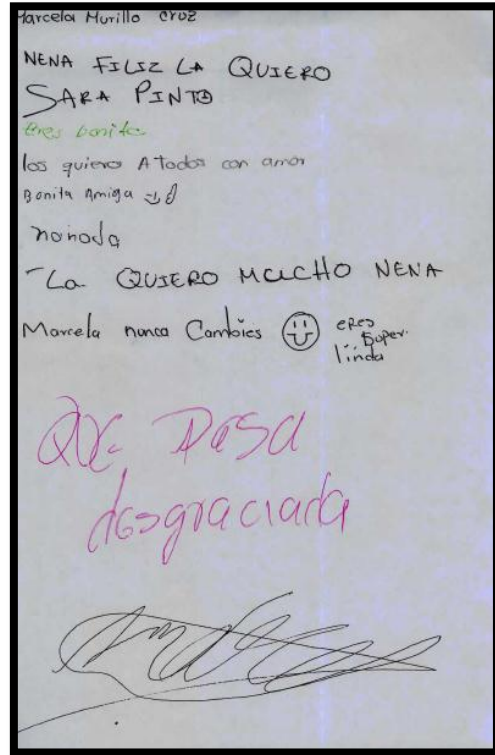 Marcela Murillo cruz
NENA FILIZ LA QUIERO
SARA PINTO
Eres bonita
los quiero A todos con amor
Bonita Amiga
nonoda
La QUIERO MUCHO NENA
Marcela nunca Cambies eres
super.
linda
QUE PASA
desgraciada